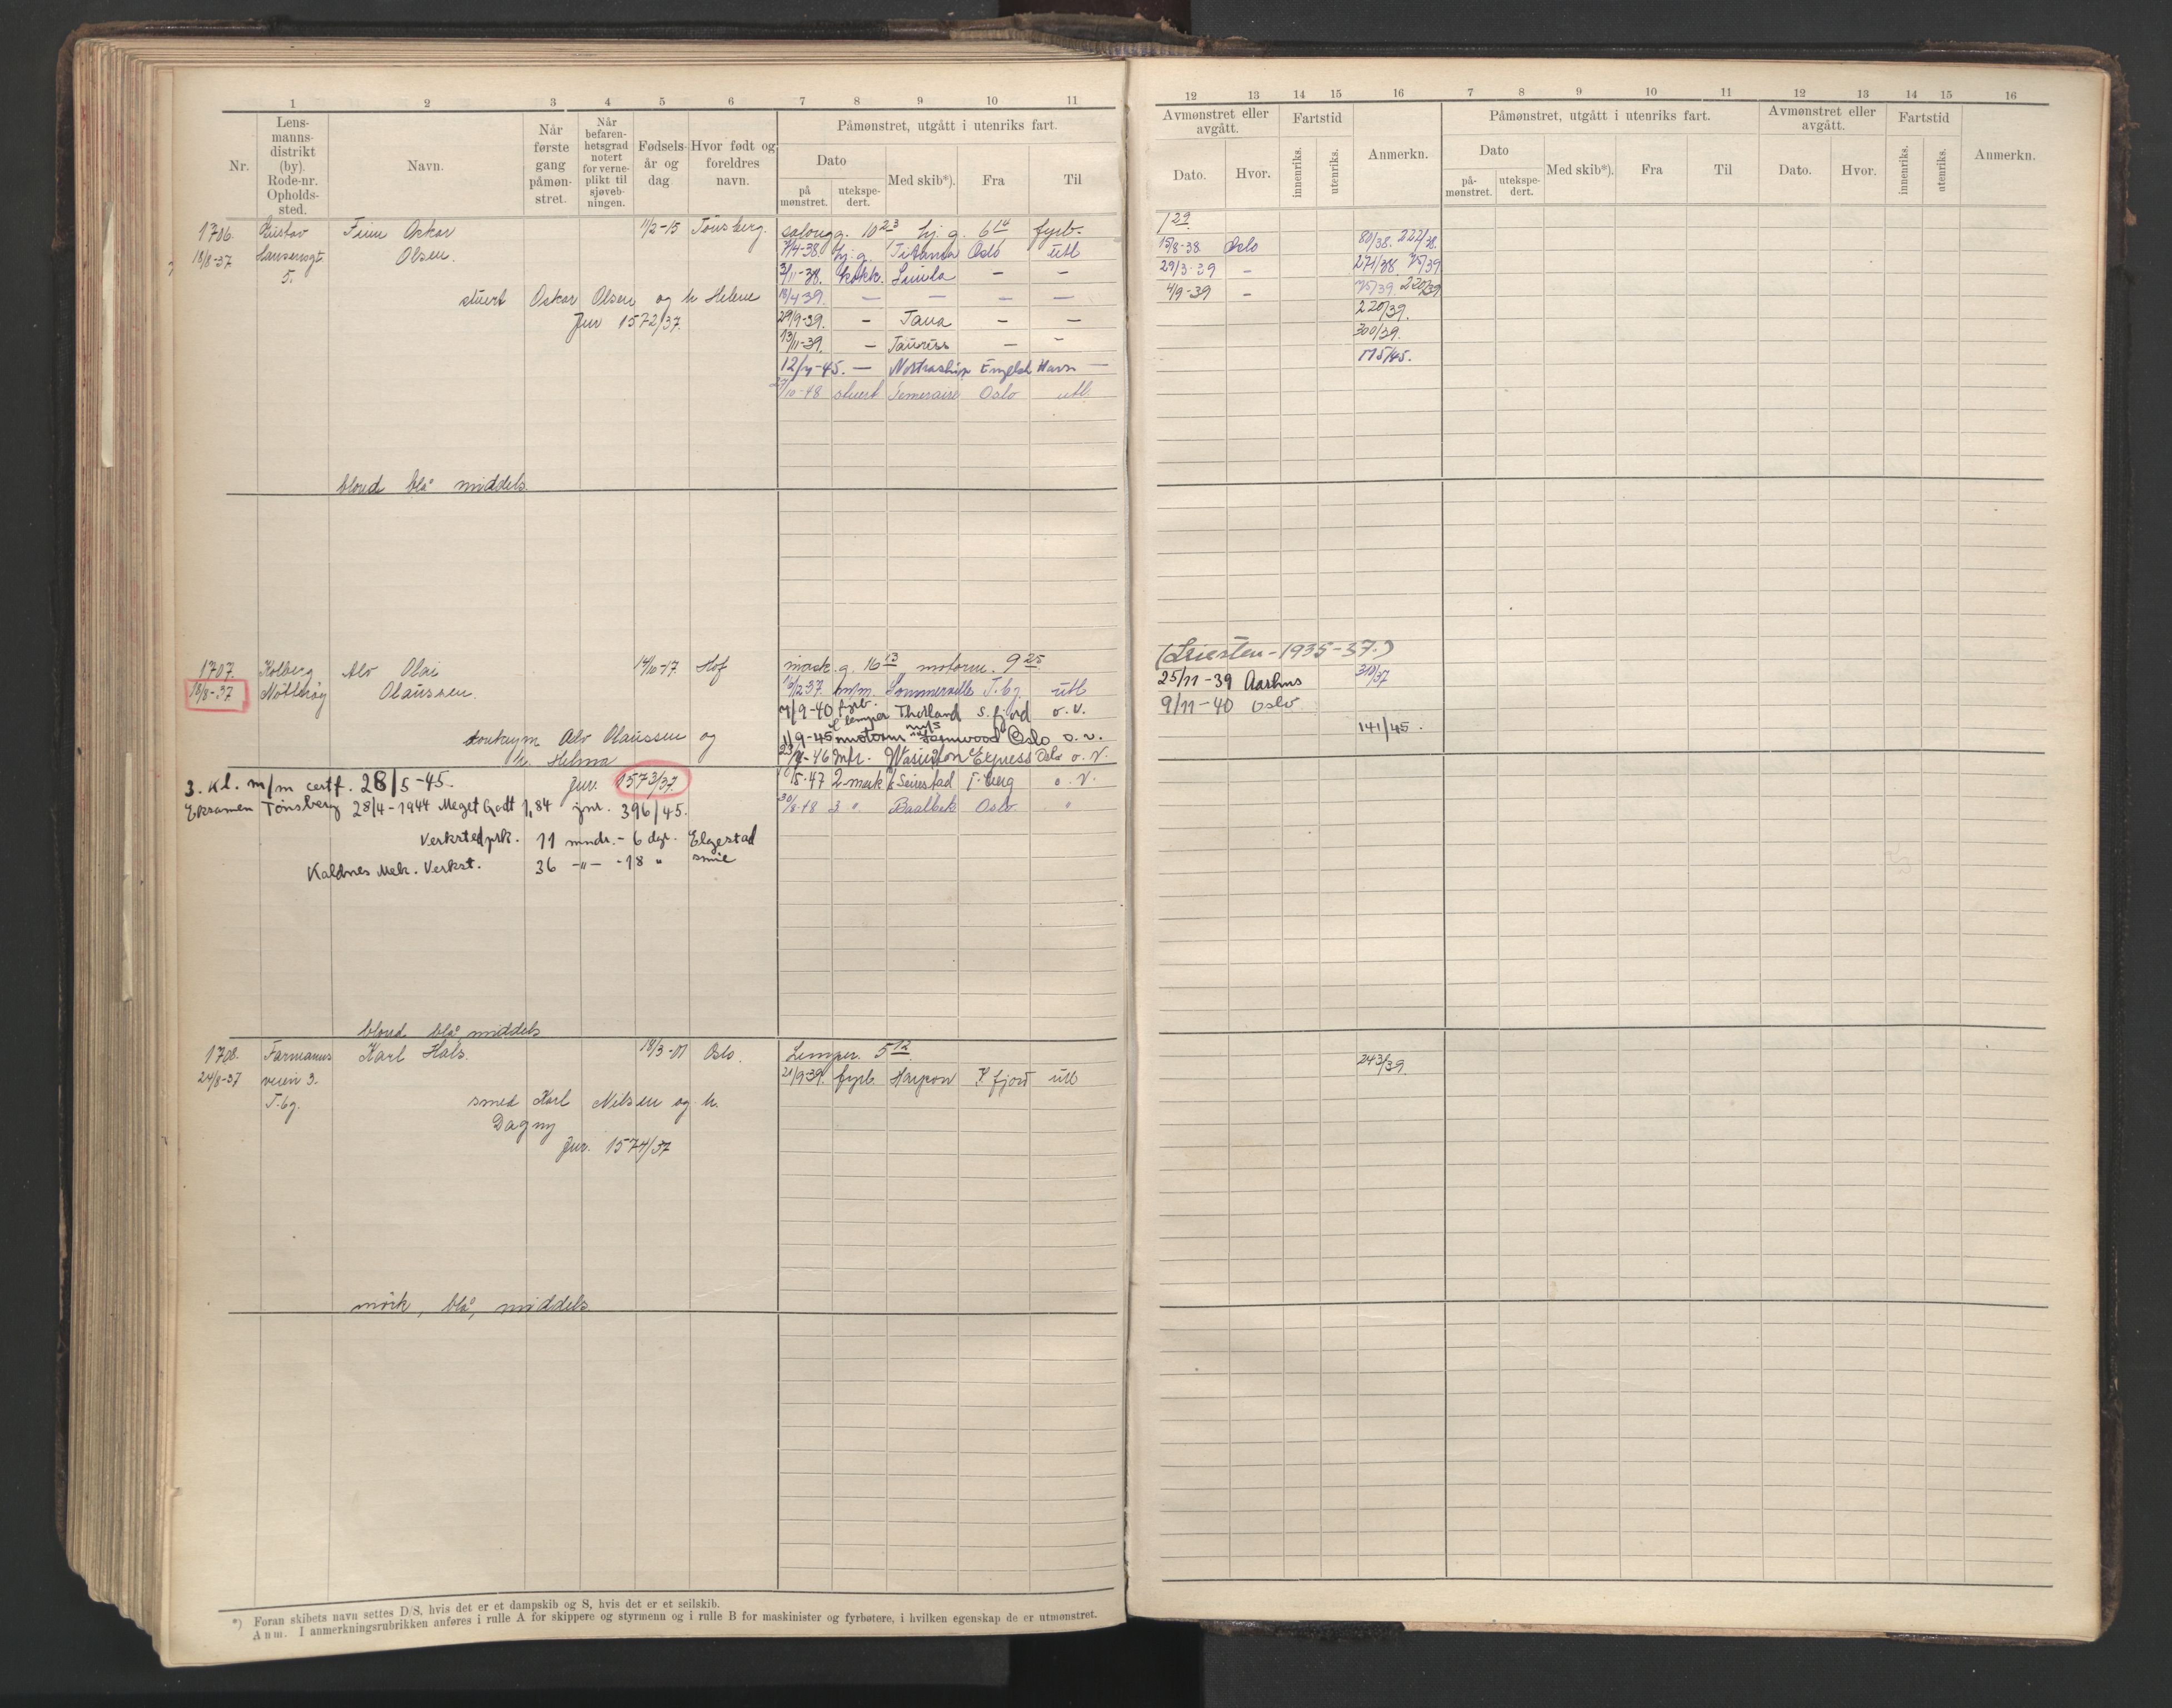 1 2 3 4 5 6 7 8 9 10 11
Nr.
Lens-
manns-
distrikt
(by).
Rode-nr.
Opholds-
sted.
Navn.
Når
første
gang
påmøn-
stret.
Når
befaren-
hetsgrad
notert
for verne-
plikt til
sjøveb-
ningen.
Fødsels-
år og
dag
Hvor født og
foreldres
navn.
Påmønstret, utgått i utenriks fart.
Dato
på
mønstret.
utekspe-
dert.
Med skib*).
Fra
Til
1706. Gustav Finn Oskar 11/2-15 Tönsberg. salongg. 10 23 hj. g. 6 14 fyrb.
18/8-37 Hansensgt. Olsen. 7/4-38. hj. g. Titania Oslo utl
5. 3/11-38. kokk. Simla — —
stuert Oskar Olsen og h. Helene 18/4-39. — — — —
Jnr 1572/37. 29/9-39. — Tana — —
13/11-39. — Tauriss — —
12/4-45. — Nortraship Engelsk Havn —
27/10-48 stuert Temeraire Oslo utl.
blond blå middels.
1707. Kolberg Alv Olai 14/10-17 Hof mask. g. 16 13 motorm. 9 25.
18/8-37 Nötteröy Olaussen. 16/2-37. m/m. Sommerville T.bg. utl
7/9-40 fyrb. lemper Thorland S. fjord o. v.
tankrym Alv Olaussen og 1/9-45 motorm m/s Fernwood Oslo o. v.
h. Helma 23/4-46 mtr. Wasington Express Oslo o. v.
3. Kl. m/m certf. 28/5-45. Jnr. 1573/37. 10/5-47 2-mask Seirstad T.berg o. v.
Eksamen Tönsberg 28/4-1944 Meget Godt 1,84 jnr. 396/45. 30/8-48 3 " Baalbek Oslo. "
Verkstedprk. 11 mndr. - 6 dgr. Elgestad
Kaldnes Mek. Verkst. 36 -"- -18 " smie
blond blå middels
1708. Farmanns Karl Hals. 18/3-01 Oslo. Lemper. 5 12
24/8-37 veien 3. 21/9-39. fyrb. Harpon S. fjord utl
T.bg. smed Karl Nilsen og h.
Dagny
Jnr. 1574/37
mörk, blå, middels
*) Foran skibets navn settes D/S, hvis det er et dampskib og S, hvis det er et seilskib.
Anm. I anmerkningsrubrikken anføres i rulle A for skippere og styrmenn og i rulle B for maskinister og fyrbøtere, i hvilken egenskap de er utmønstret.
12 13 14 15 16 7 8 9 10 11 12 13 14 15 16
Avmønstret eller
avgått.
Dato.
Hvor.
Fartstid
innenriks.
utenriks.
Anmerkn.
Påmønstret, utgått i utenriks fart.
Dato
på-
mønstret.
utekspe-
dert.
Med skib*).
Fra
Til
Avmønstret eller
avgått.
Dato.
Hvor.
Fartstid
innenriks.
utenriks.
Anmerkn.
1 29
15/8-38 Oslo 80/38. 222/38.
29/3-39 — 271/38. 75/39
4/9-39 — 75/39 220/39
220/39.
300/39.
115/45.
(Triesten-1935-37.)
25/11-39 Aarhus 310/37
9/11-40 Oslo
141/45.
243/39.